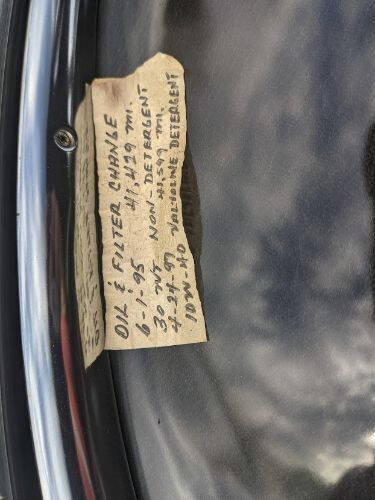 OIL & FILTER CHANGE
6-1-95 41,429 MI.
30 WT NON-DETERGENT
4-24-97 41,599 MI.
10W-40 VALVOLINE DETERGENT